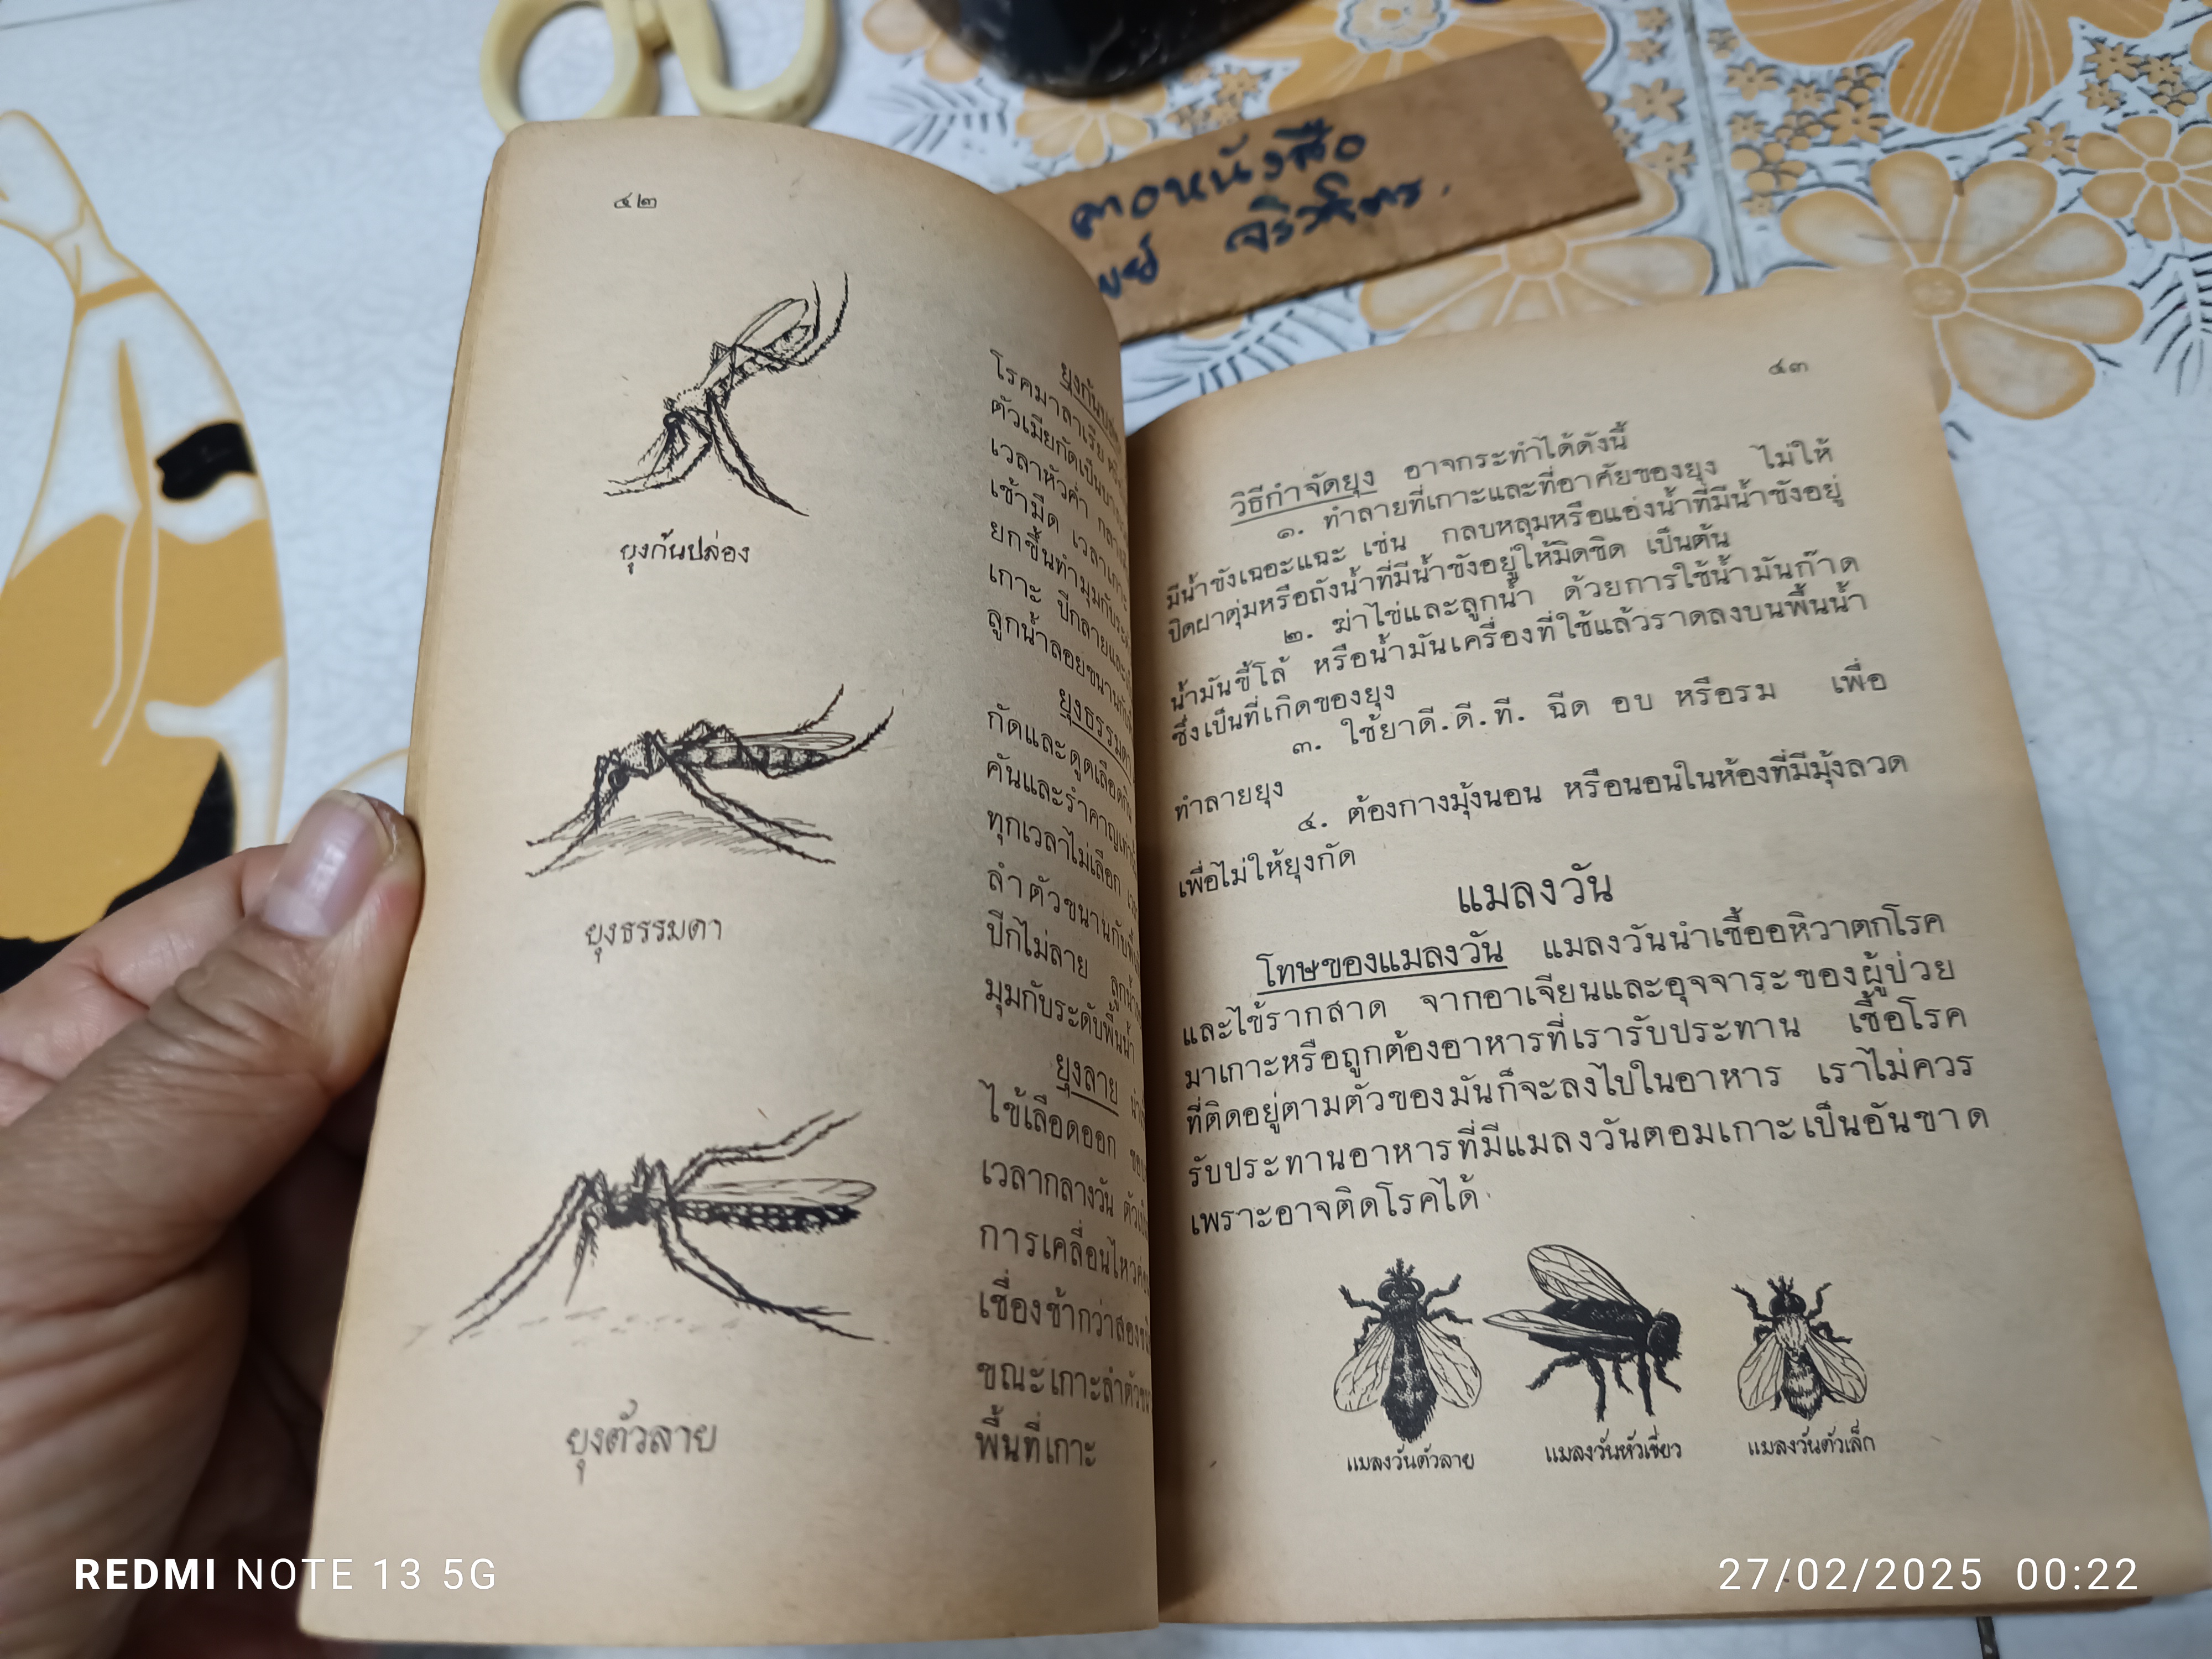 คอหนังสือ
จิรภัทร.
๔๒
ยุงก้นปล่อง
ยุงธรรมดา
ยุงตัวลาย
ยุงก้นปล่อง
โรคมาลาเรีย
ตัวเมียกัดเป็น
เวลาหัวค่ำ
เช้ามืด เวลาเกาะ
ยกขึ้นทำมุมกับระดับ
เกาะ ปีกลายและ
ลูกน้ำลอยขนานกับ
ยุงธรรมดา
กัดและดูดเลือดกิน
คันและรำคาญเท่านั้น
ทุกเวลาไม่เลือก
ลำตัวขนานกับพื้นที่
ปีกไม่ลาย ลูกน้ำ
มุมกับระดับพื้นน้ำ
ยุงลาย
ไข้เลือดออก
เวลากลางวัน ตัวเมีย
การเคลื่อนไหว
เชื่องช้ากว่าสองชนิด
ขณะเกาะลำตัวขนาน
พื้นที่เกาะ
๔๓
วิธีกำจัดยุง อาจกระทำได้ดังนี้
๑. ทำลายที่เกาะและที่อาศัยของยุง ไม่ให้
มีน้ำขังเฉอะแฉะ เช่น กลบหลุมหรือแอ่งน้ำที่มีน้ำขังอยู่
ปิดฝาตุ่มหรือถังน้ำที่มีน้ำขังอยู่ให้มิดชิด เป็นต้น
๒. ฆ่าไข่และลูกน้ำ ด้วยการใช้น้ำมันก๊าด
น้ำมันขี้โล้ หรือน้ำมันเครื่องที่ใช้แล้วราดลงบนพื้นน้ำ
ซึ่งเป็นที่เกิดของยุง
๓. ใช้ยาดี.ดี.ที. ฉีด อบ หรือรม เพื่อ
ทำลายยุง
๔. ต้องกางมุ้งนอน หรือนอนในห้องที่มีมุ้งลวด
เพื่อไม่ให้ยุงกัด
แมลงวัน
โทษของแมลงวัน แมลงวันนำเชื้ออหิวาตกโรค
และไข้รากสาด จากอาเจียนและอุจจาระของผู้ป่วย
มาเกาะหรือถูกต้องอาหารที่เรารับประทาน เชื้อโรค
ที่ติดอยู่ตามตัวของมันก็จะลงไปในอาหาร เราไม่ควร
รับประทานอาหารที่มีแมลงวันตอมเกาะเป็นอันขาด
เพราะอาจติดโรคได้
แมลงวันตัวลาย แมลงวันหัวเขียว แมลงวันตัวเล็ก
REDMI NOTE 13 5G
27/02/2025 00:22